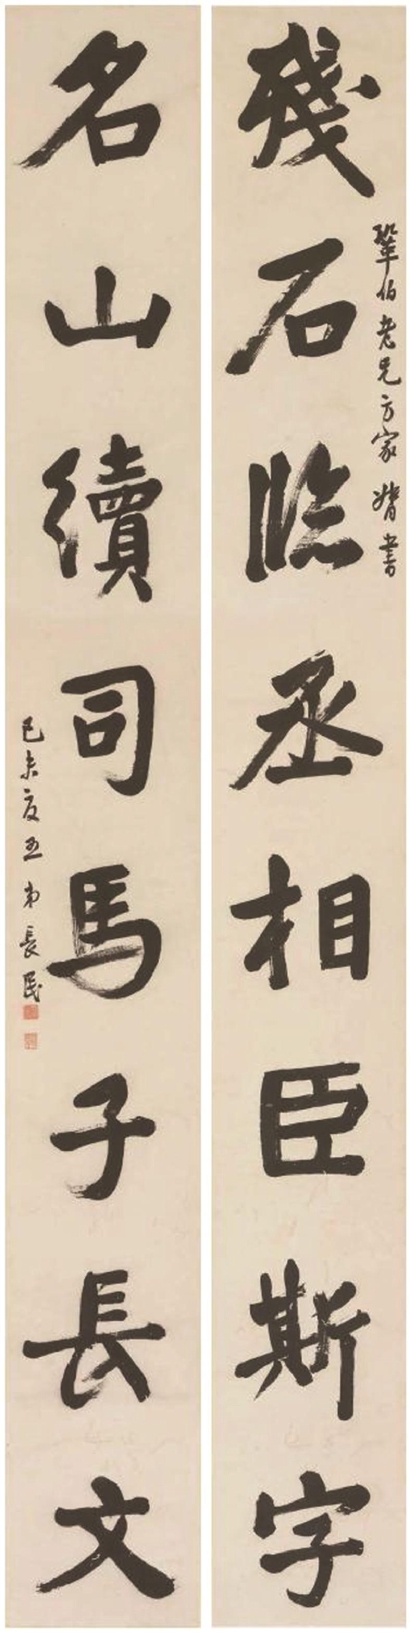 殘石臨丞相臣斯字
鞏伯老兄方家書
名山續司馬子長文
己未夏五弟長民